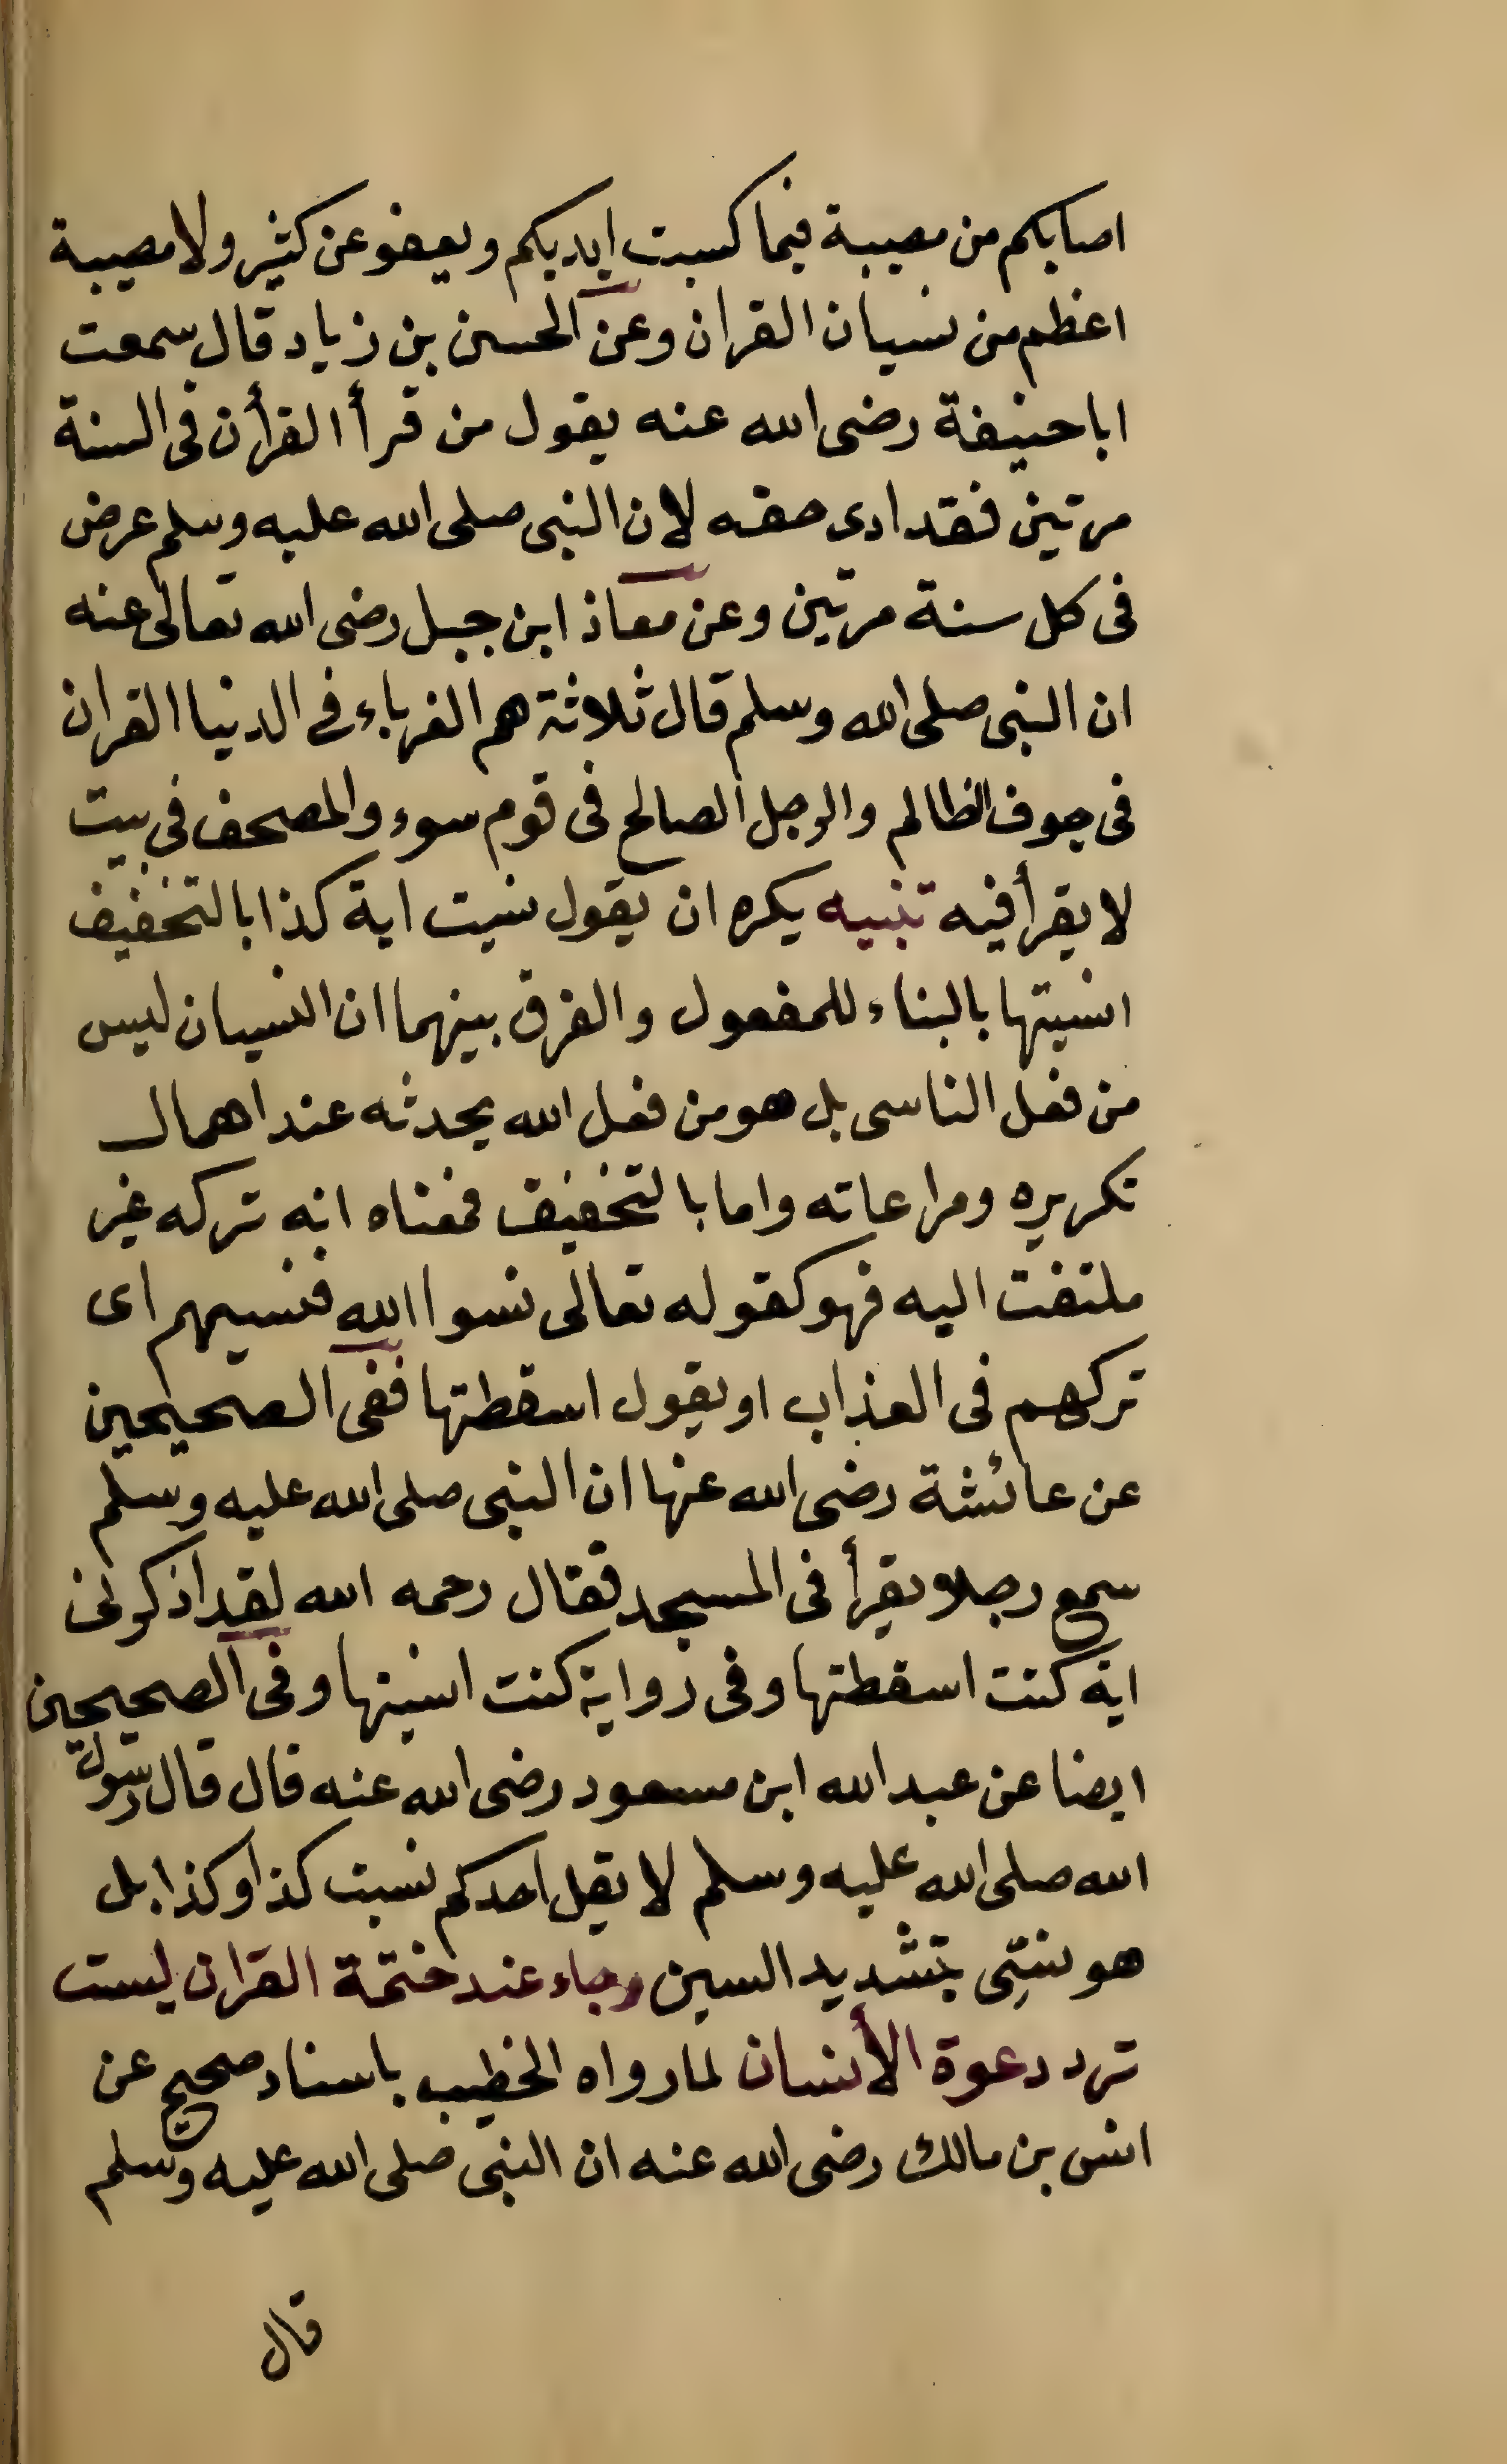 اصابكم من مصيبة فيما كسبت ايديكم ويعفو عن كثير ولا مصيبة
اعظم من نسيان القران وعن الحسن بن زياد قال سمعت
ابا حنيفة رضى الله عنه يقول من قرأ القرأن فى السنة
مرتين فقد ادى حقه لان النبى صلى الله عليه وسلم عرض
فى كل سنة مرتين وعن معاذ ابن جبل رضى الله تعالى عنه
ان النبى صلى الله وسلم قال ثلاثة هم الغرباء فى الدنيا القران
فى جوف الظالم والرجل الصالح فى قوم سوء والمصحف فى بيت
لا يقرأ فيه تنبيه يكره ان يقول نسيت اية كذا بالتخفيف
انسيتها بالبناء للمفعول والفرق بينهما ان النسيان ليس
من فعل الناسى بل هو من فعل الله يحدثه عند اهمال
تكريره ومراعاته واما بالتخفيف فمعناه انه تركه غير
ملتفت اليه فهو كقوله تعالى نسوا الله فنسيهم اى
تركهم فى العذاب او يقول اسقطتها ففى الصحيحين
عن عائشة رضى الله عنها ان النبى صلى الله عليه وسلم
سمع رجلا يقرأ فى المسجد فقال رحمه الله لقد اذكرنى
اية كنت اسقطتها وفى رواية كنت انسيتها وفى الصحيحين
ايضا عن عبد الله ابن مسعود رضى الله عنه قال قال رسول
الله صلى الله عليه وسلم لا يقل احدكم نسيت كذا وكذا بل
هو نسِّى بتشديد السين وجاء عند ختمة القران ليست
ترد دعوة الأنسان لما رواه الخطيب باسناد صحيح عن
انس بن مالك رضى الله عنه ان النبى صلى الله عليه وسلم
قال